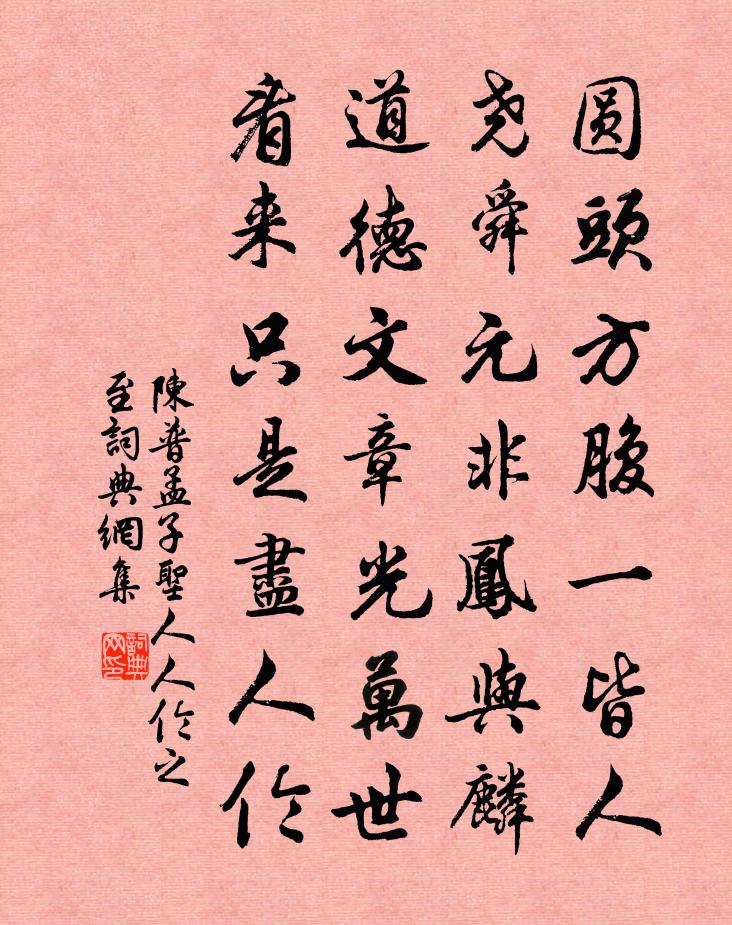 圆頭方腹一皆人
尧舜元非鳳與麟
道德文章光萬世
看来只是盡人伦
陳普孟子聖人人伦之
至詞典網集
詞典网印